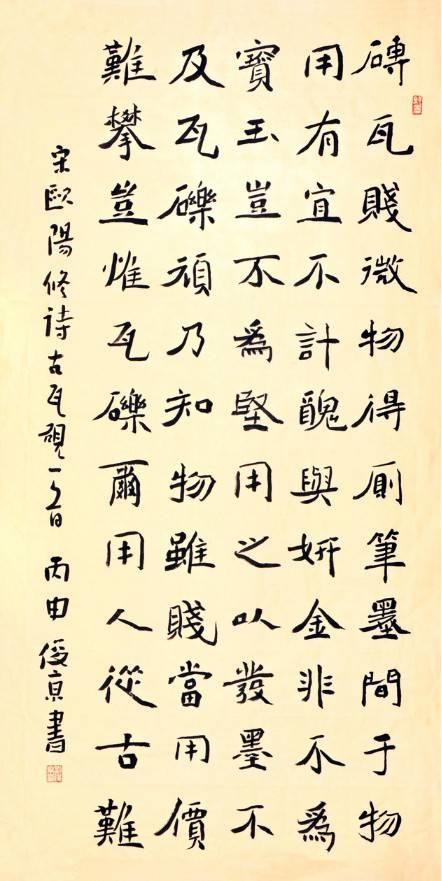 磚瓦賤微物得廁筆墨間于物
用有宜不計醜與妍金非不為
寶玉豈不為堅用之以發墨不
及瓦礫頑乃知物雖賤當用價
難攀豈惟瓦礫爾用人從古難
宋歐陽修詩古瓦硯一首 丙申 書